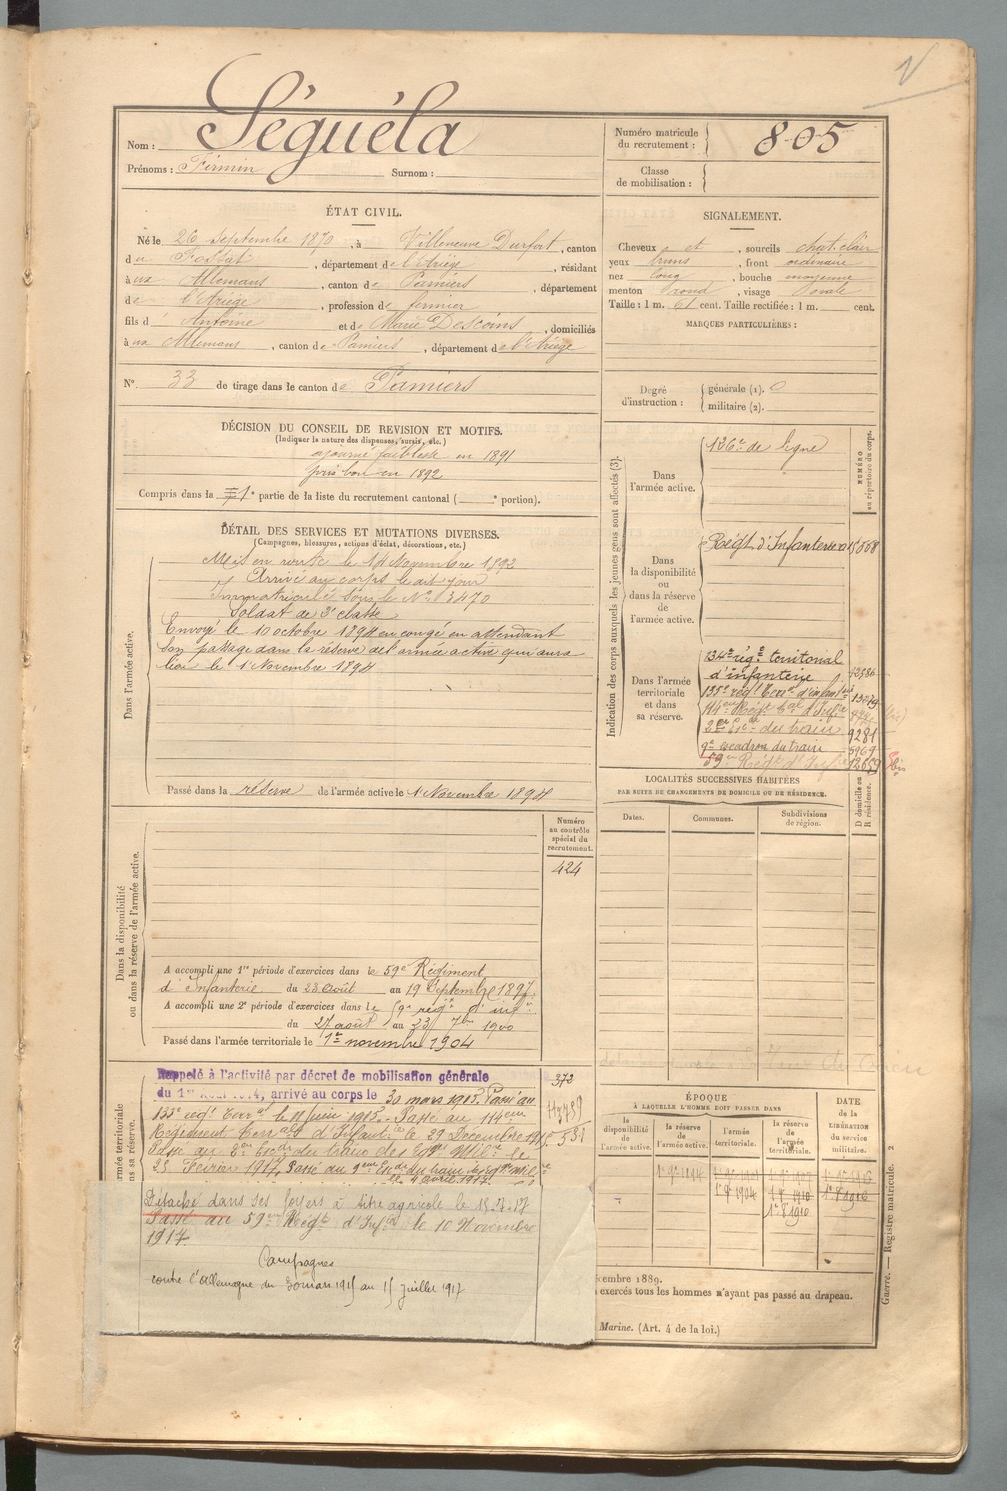 Nom : Séguéla
Prénoms : Firmin Surnom :
Numéro matricule du recrutement : 805
Classe de mobilisation :
ÉTAT CIVIL.
Né le 26 Septembre 1870, à Villeneuve Durfort, canton
du Fossat, département de l'Ariège, résidant
à ux Allemans, canton de Pamiers, département
de l'Ariège, profession de fermier
fils d' Antoine et de Marie Descoins, domiciliés
à ux Allemans, canton de Pamiers, département de l'Ariège
N° 33 de tirage dans le canton de Pamiers
SIGNALEMENT.
Cheveux et, sourcils chat. clair
yeux bruns, front ordinaire
nez long, bouche moyenne
menton rond, visage ovale
Taille : 1 m. 61 cent. Taille rectifiée : 1 m. cent.
MARQUES PARTICULIÈRES :
Degré d'instruction : générale (1). militaire (2).
DÉCISION DU CONSEIL DE REVISION ET MOTIFS.
(Indiquer la nature des dispenses, sursis, etc.)
ajourné faiblesse en 1891
pris bon en 1892
Compris dans la 1e partie de la liste du recrutement cantonal ( e portion).
DÉTAIL DES SERVICES ET MUTATIONS DIVERSES.
(Campagnes, blessures, actions d'éclat, décorations, etc.)
Dans l'armée active.
Mis en route le 14 Novembre 1892
Arrivé au corps le dit jour
Immatriculé sous le N° 3470
Soldat de 2e classe
Envoyé le 10 octobre 1894 en congé en attendant
son passage dans la réserve de l'armée active qui aura
lieu le 1 Novembre 1894
Passé dans la réserve de l'armée active le 1 Novembre 1894
Indication des corps auxquels les jeunes gens sont affectés (3).
NUMÉRO au répertoire du corps.
Dans l'armée active.
126e de ligne
Dans la disponibilité ou dans la réserve de l'armée active.
Régt d'Infanterie 15568
Dans l'armée territoriale et dans sa réserve.
134e rég. territorial
d'infanterie
135e régt terr. d'infanterie
114e Régt tal d'Infie
2e Econ du train 9281
9e escadron du train 5969
59e Régt d'Infie 12659 bis
LOCALITÉS SUCCESSIVES HABITÉES
PAR SUITE DE CHANGEMENTS DE DOMICILE OU DE RÉSIDENCE.
Dates. Communes. Subdivisions de région. D domicile ou R résidence.
Dans la disponibilité
ou dans la réserve de l'armée active.
Numéro au contrôle spécial du recrutement.
424
A accompli une 1re période d'exercices dans le 59e Régiment
d'Infanterie du 23 août au 19 Septembre 1897.
A accompli une 2e période d'exercices dans le 59e rég. d'inf.
du 27 août au 23 7bre 1900
Passé dans l'armée territoriale le 1er novembre 1904
372
Rappelé à l'activité par décret de mobilisation générale
du 1er Août 1914, arrivé au corps le 30 mars 1915. Passé au
135e rég. terral le 11 juin 1915. Passé au 114eme
Régiment terral d'Infanterie le 29 Décembre 1915
Passé au 2e Escon du train des Eqges Mil. le
23 Février 1917, Passé au 9eme Escon du train des Eqges Mil.
le 4 avril 1917.
Détaché dans ses foyers à titre agricole le 15-7-17
Passé au 59eme Régt d'Infie le 10 Novembre
1917
Campagnes
contre l'Allemagne du 30 mars 1915 au 15 juillet 1917
ÉPOQUE
À LAQUELLE L'HOMME DOIT PASSER DANS
la disponibilité de l'armée active. la réserve de l'armée active. l'armée territoriale. la réserve de l'armée territoriale.
DATE de la LIBÉRATION du service militaire.
cembre 1889.
exercés tous les hommes n'ayant pas passé au drapeau.
Marine. (Art. 4 de la loi.)
Guerre. — Registre matricule. 2